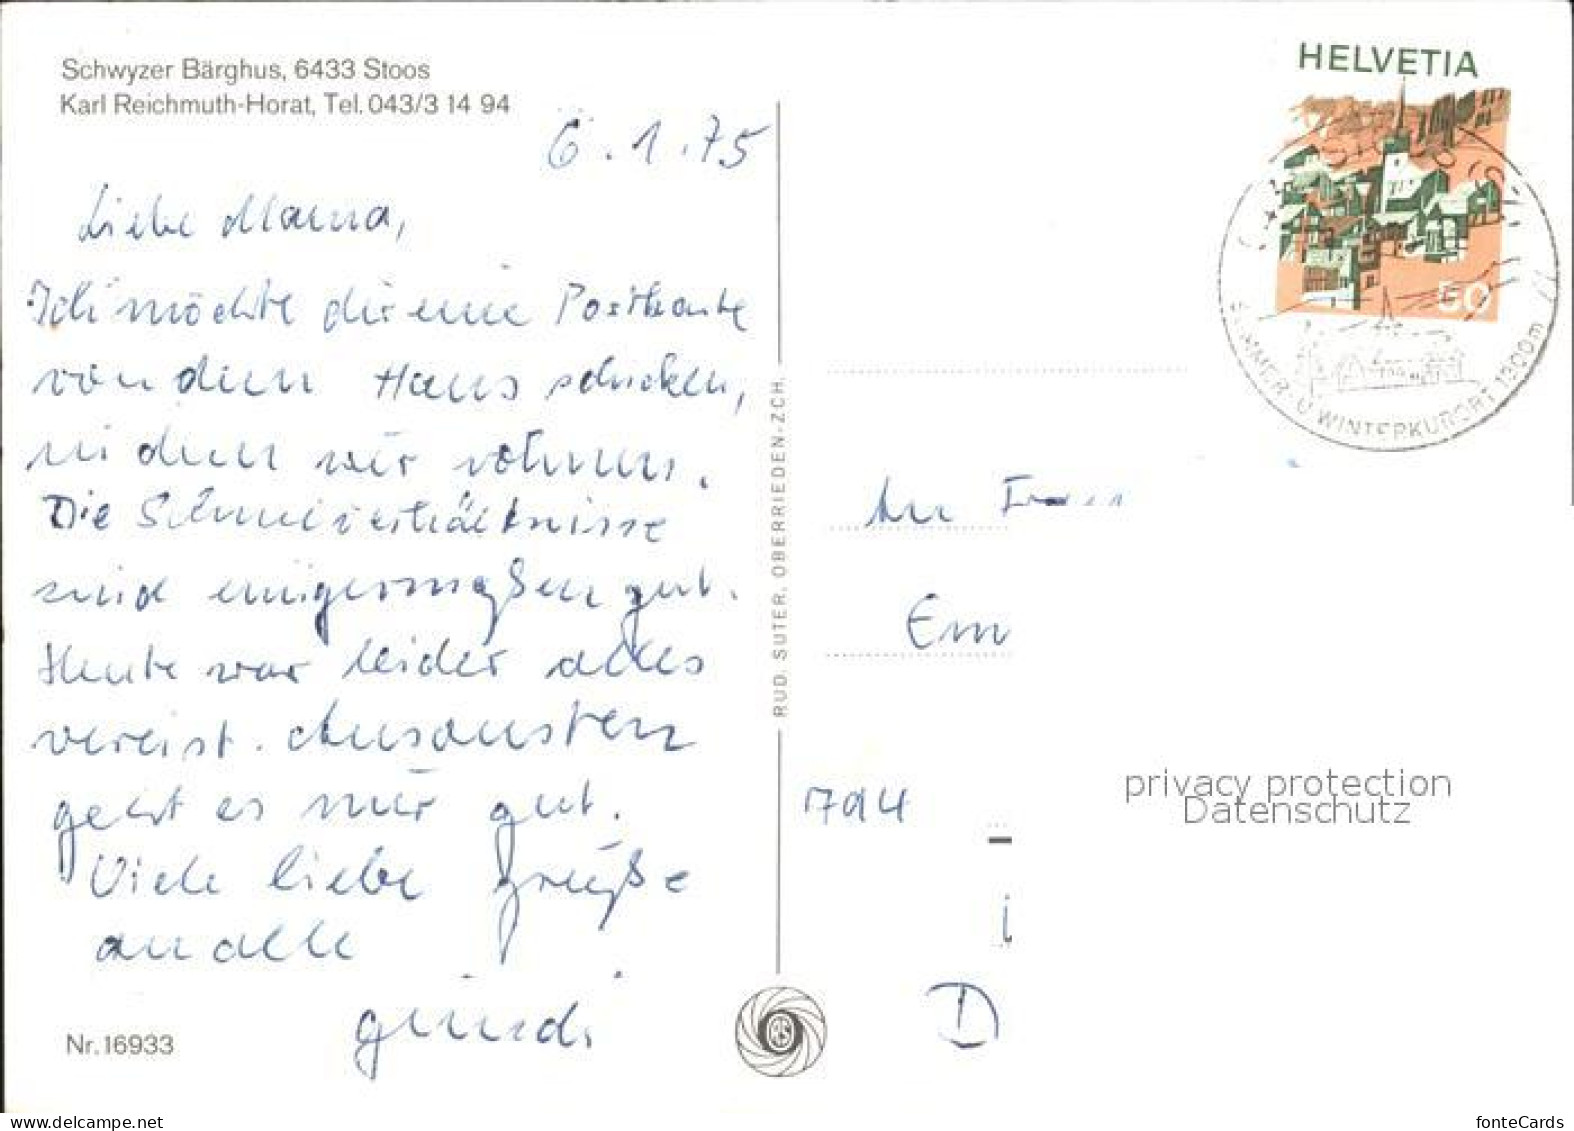 Schwyzer Bärghus, 6433 Stoos
Karl Reichmuth-Horat, Tel. 043/3 14 94
6.1.75
Liebe Mama,
Ich möchte dir eine Postkarte
von dem Haus schicken,
in dem wir wohnen.
Die Schneeverhältnisse
sind einigermaßen gut.
Heute war leider alles
vereist. Ansonsten
geht es mir gut.
Viele liebe Grüße
an alle
Nr. 16933
RUD. SUTER, OBERRIEDEN-ZCH.
HELVETIA
50
SOMMER- U. WINTERKURORT 1300m
An Frau
Em
794
D
privacy protection
Datenschutz
www.delcampe.net
fonteCards